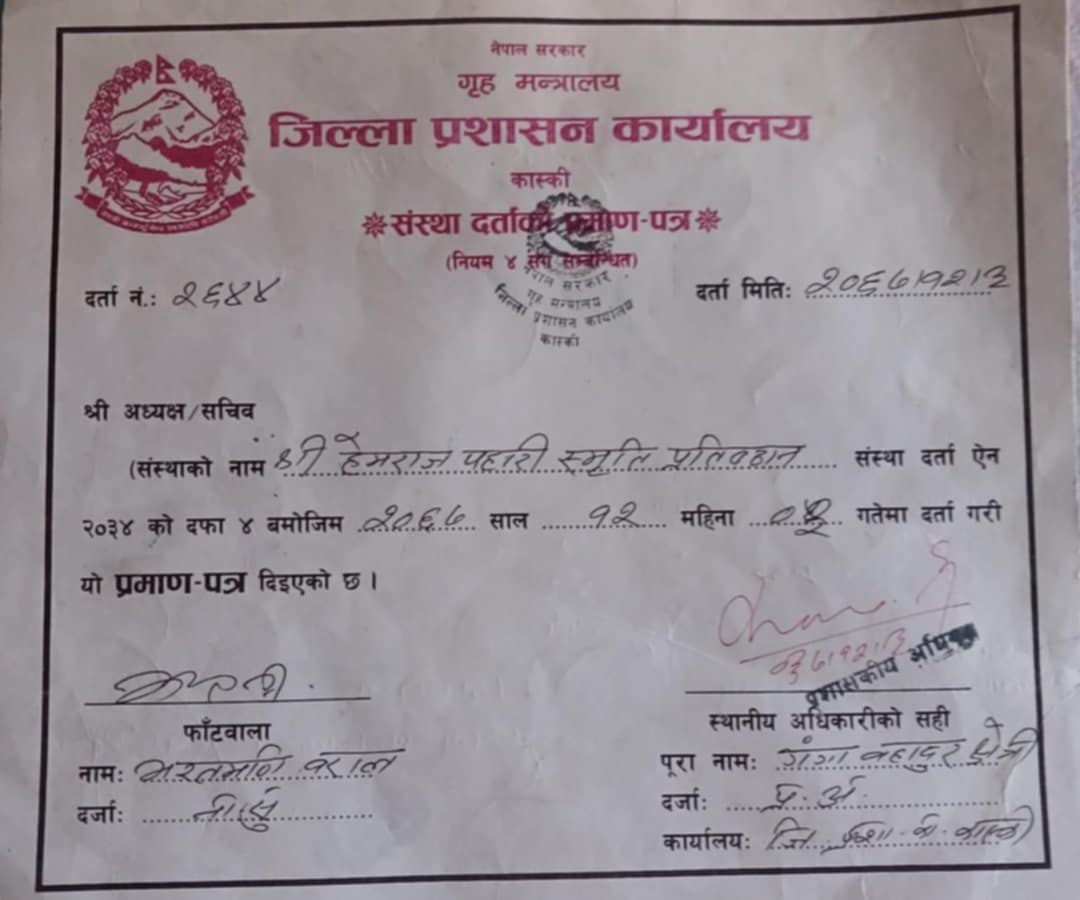 नेपाल सरकार
गृह मन्त्रालय
जिल्ला प्रशासन कार्यालय
कास्की
संस्था दर्ताको प्रमाण-पत्र
(नियम ४ सँग सम्बन्धित)
दर्ता नं.: २६४४
दर्ता मिति: २०६७।१२।३
नेपाल सरकार
गृह मन्त्रालय
जिल्ला प्रशासन कार्यालय
कास्की
श्री अध्यक्ष/सचिव
(संस्थाको नाम श्री हेमराज पहारी स्मृति प्रतिष्ठान संस्था दर्ता ऐन
२०३४ को दफा ४ बमोजिम २०६७ साल १२ महिना गतेमा दर्ता गरी
यो प्रमाण-पत्र दिइएको छ।
६७।१२।३
प्रशासकीय अधिकृत
फाँटवाला
स्थानीय अधिकारीको सही
नाम: भरतमणि बराल
पूरा नाम: गंगा बहादुर क्षेत्री
दर्जा: ना.सु
दर्जा: प्र.अ.
कार्यालय: जि.प्रशा.का.कास्की